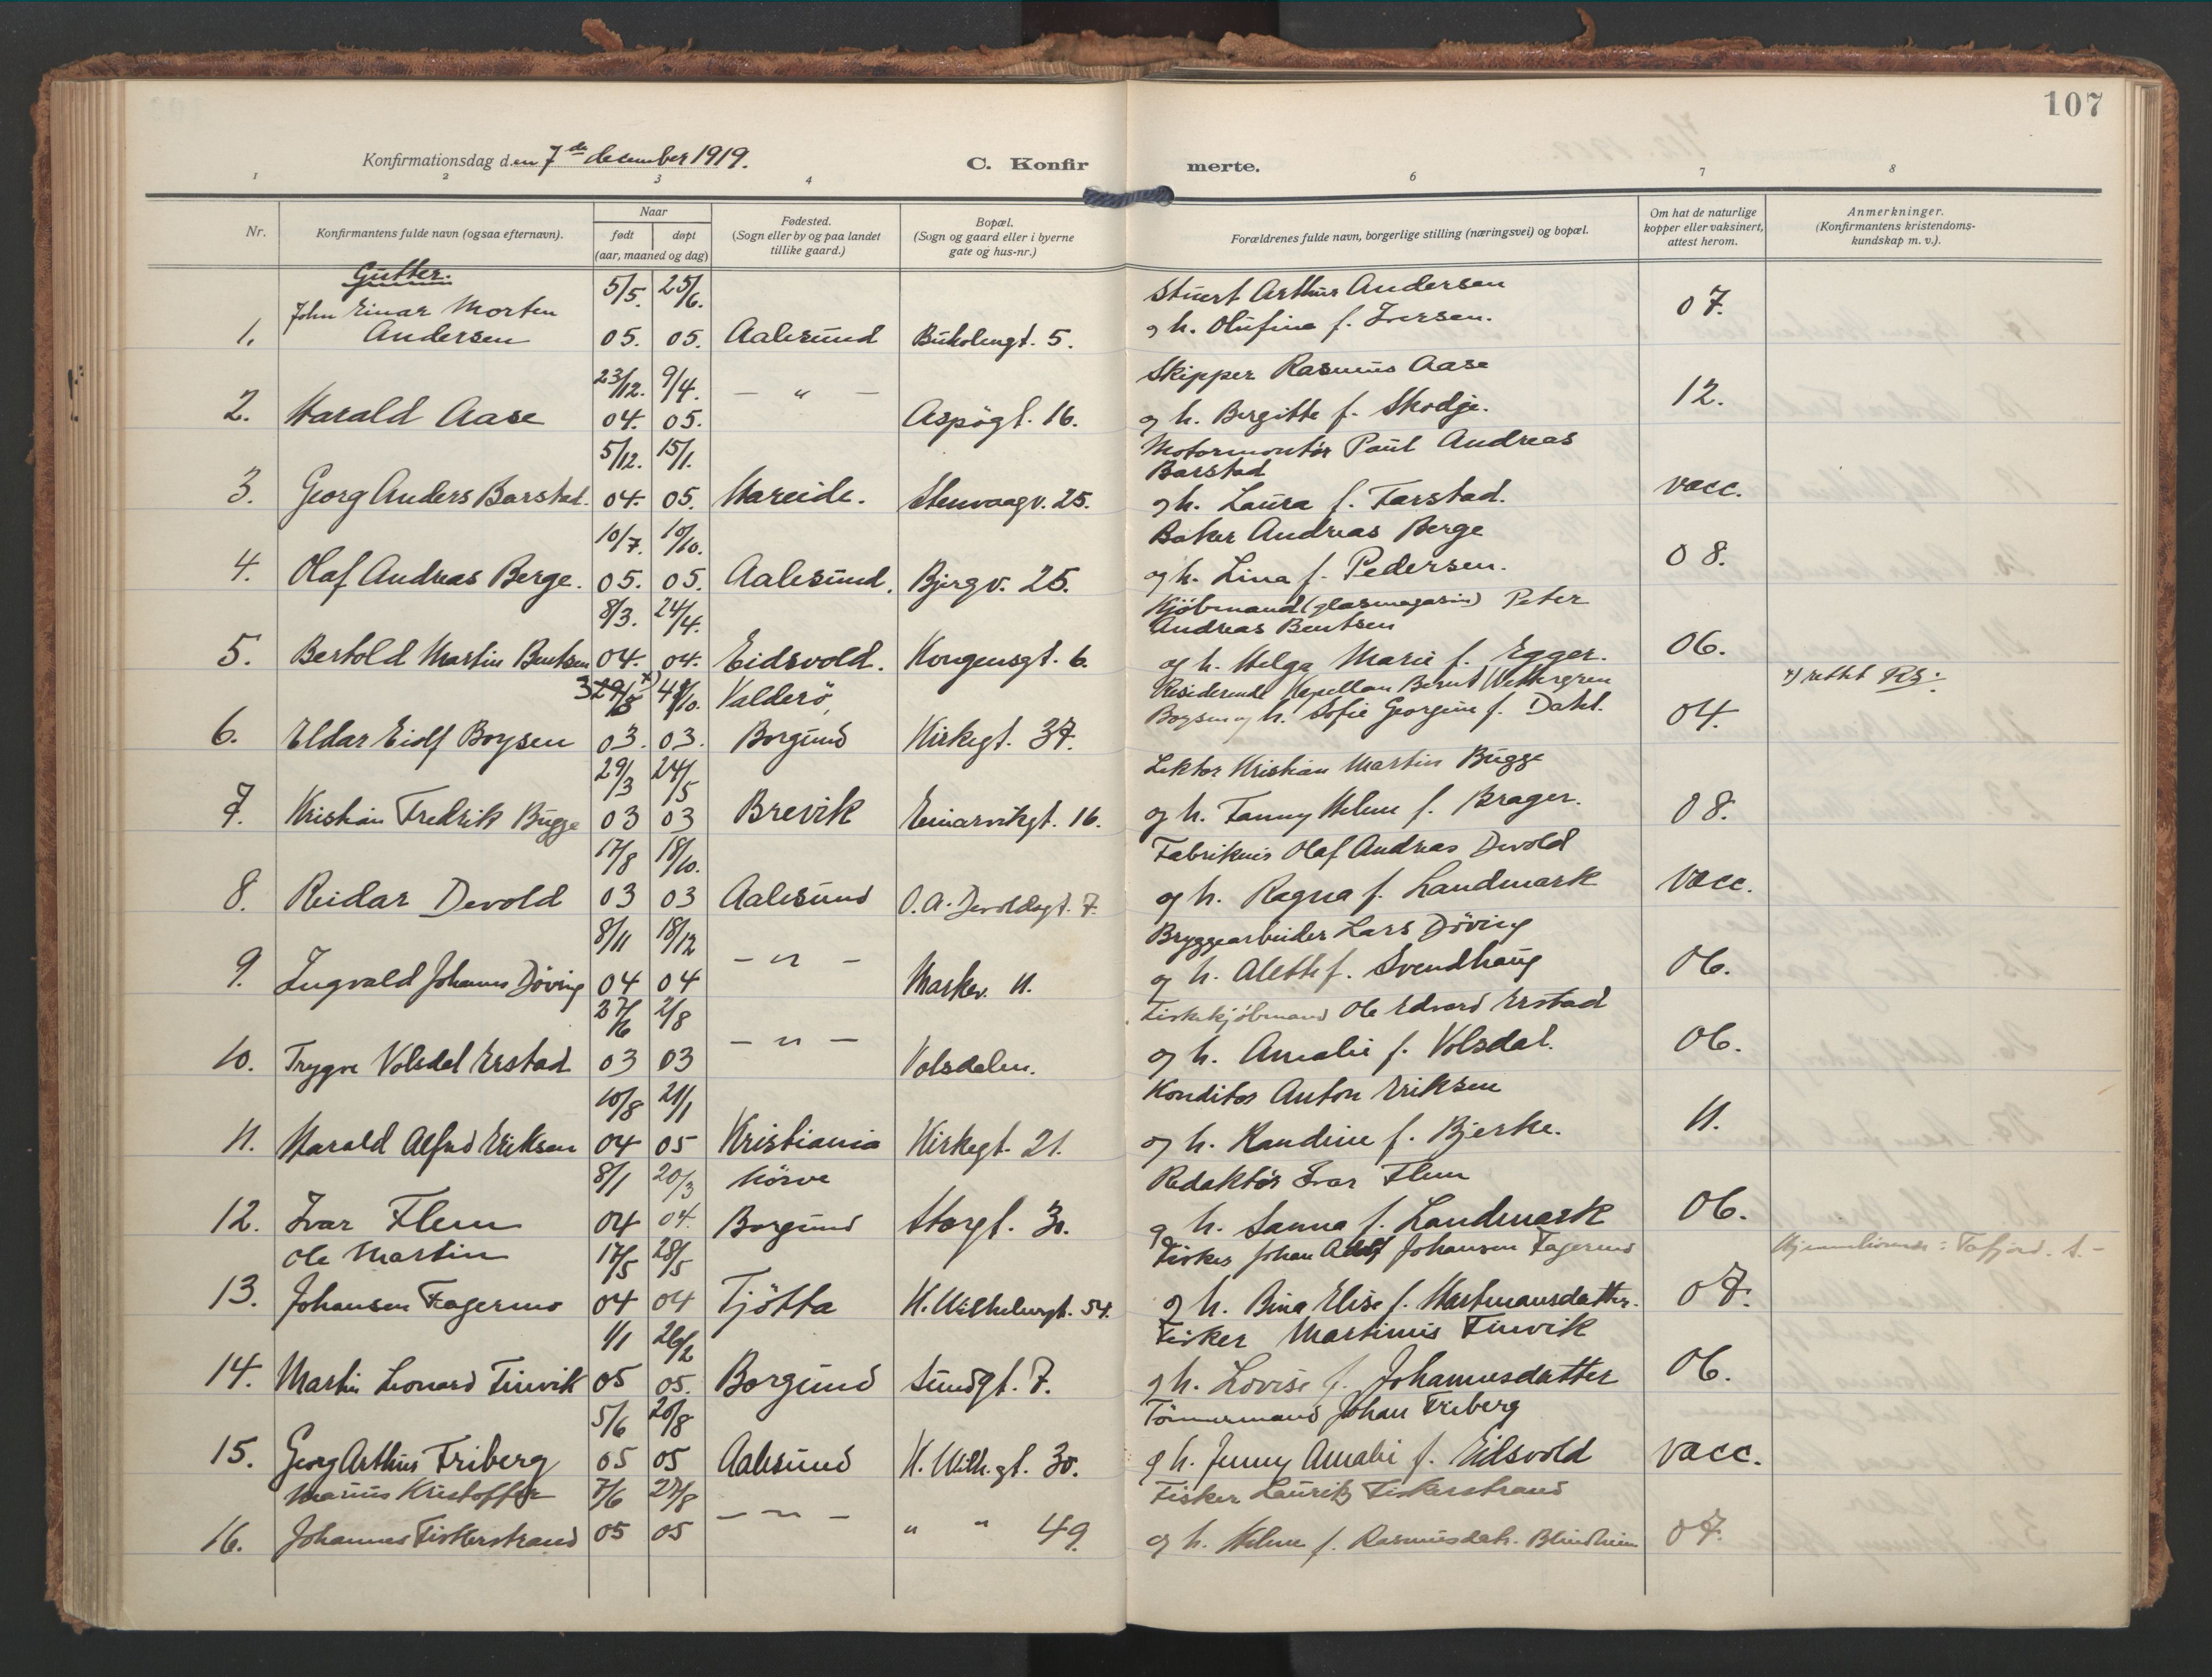 107
Konfirmationsdag den 7de desember 1919.
C. Konfirmerte.
1 2 3 4 6 7 8
Nr.
Konfirmantens fulde navn (ogsaa efternavn).
Naar
født døpt
(aar, maaned og dag)
Fødested.
(Sogn eller by og paa landet
tillike gaard.)
Bopæl.
(Sogn og gaard eller i byerne
gate og hus-nr.)
Forældrenes fulde navn, borgerlige stilling (næringsvei) og bopæl.
Om hat de naturlige
kopper eller vaksinert,
attest herom.
Anmerkninger.
(Konfirmantens kristendoms-
kundskap m. v.).
Gutter.
John Einar Morten 5/5. 25/6. Stuert Arthur Andersen
1. Andersen 05. 05. Aalesund Bukolmgt. 5. og h. Olufine f. Iversen. 07.
23/12. 9/4. — " — Skipper Rasmus Aase
2. Harald Aase 04. 05. Aspögt. 16. og h. Bergitte f. Skodje. 12.
5/12. 15/1. Motormontør Paul Andreas
Barstad
3. Georg Anders Barstad. 04. 05. Hareide. Stenvaagv. 25. og h. Laura f. Tarstad. vacc.
10/7. 10/10. Baker Andreas Berge
4. Olaf Andreas Berge. 05. 05. Aalesund. Bjergv. 25. og h. Lina f. Pedersen. 08.
8/3. 24/4. Kjöbmand (glasmagasin) Peter
Andreas Bentsen
5. Bertold Martin Bentsen 04. 04. Eidsvold. Kongensgt. 6. og h. Helga Marie f. Egger. 06.
Valderö, Residerende Kapellan Bernt Wettergren x) rettet RS.
6. Eldar Eiolf Boysen 03. 03. Borgund Kirkegt. 37. Boysen og h. Sofie Georgine f. Dahl. 04.
29/3 24/5 Lektor Kristian Martin Bugge
7. Kristian Fredrik Bugge 03 03 Brevik Einarvikgt. 16. og h. Fanny Helene f. Brager. 08.
17/8 18/10. Fabrikeier Olaf Andreas Devold
8. Reidar Devold 03 03 Aalesund O. A. Devoldsgt. 7. og h. Ragna f. Landmark vacc.
8/11 18/12 — " — Bryggearbeider Lars Döving
9. Ingvald Johannes Döving 04 04 Markev. 11. og h. Alette f. Svendhaug 06.
27/6 2/8 — " — Fiskekjöbmand Ole Edvard Erstad
10. Trygve Volsdal Erstad 03 03 Volsdalen. og h. Amalie f. Volsdal. 06.
10/8 21/1 Konditor Anton Eriksen
11. Harald Alfred Eriksen 04 05 Kristiania Kirkegt. 21. og h. Randine f. Bjerke. 11.
8/1 20/3 Nörve Redaktör Ivar Flem
12. Ivar Flem 04 04. Borgund Storgt. 30. og h. Sanna f. Landmark 06.
Ole Martin 17/5 28/5 Fisker Johan Adolf Johansen Fagermo : Tafjord. S. -
13. Johansen Fagermo 04 04 Tjötta K. Wilhelmsgt. 54. og h. Bina Elise f. Hartmansdatter. 07.
1/1 26/2 Fisker Martinus Finvik
14. Martin Leonard Finvik 05 05. Borgund Sundgt. 7. og h. Lovise f. Johannesdatter 06.
5/6 20/8 Tömmermand Johan Friberg
15. Georg Arthur Friberg 05 05 Aalesund K. Wilh. gt. 30. og h. Jenny Amalie f. Eidsvold vacc.
Marius Kristoffer 7/6 27/8 — " — Fisker Laurits Fiskerstrand
16. Johannes Fiskerstrand 05 05 " " 49. og h. Helene f. Rasmusdatr. Blindheim 07.